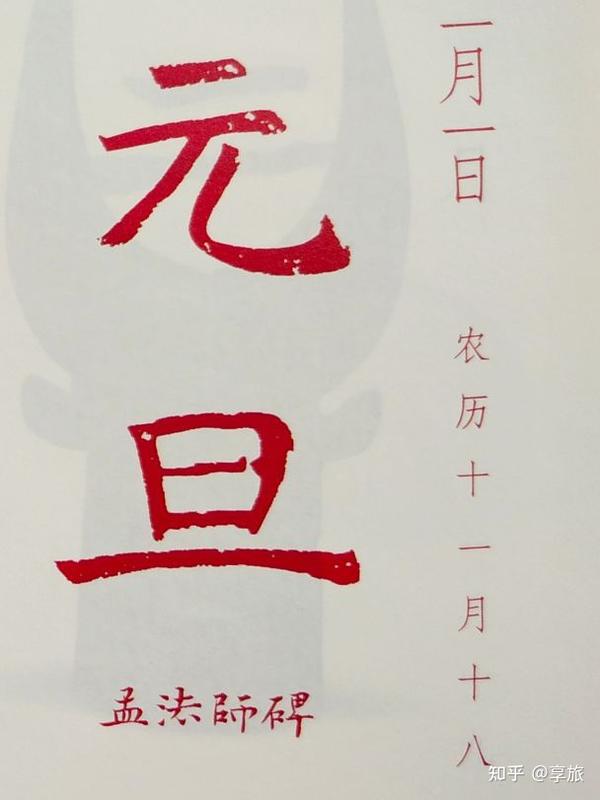 一月一日
农历十一月十八
元旦
孟法師碑
知乎 @享旅